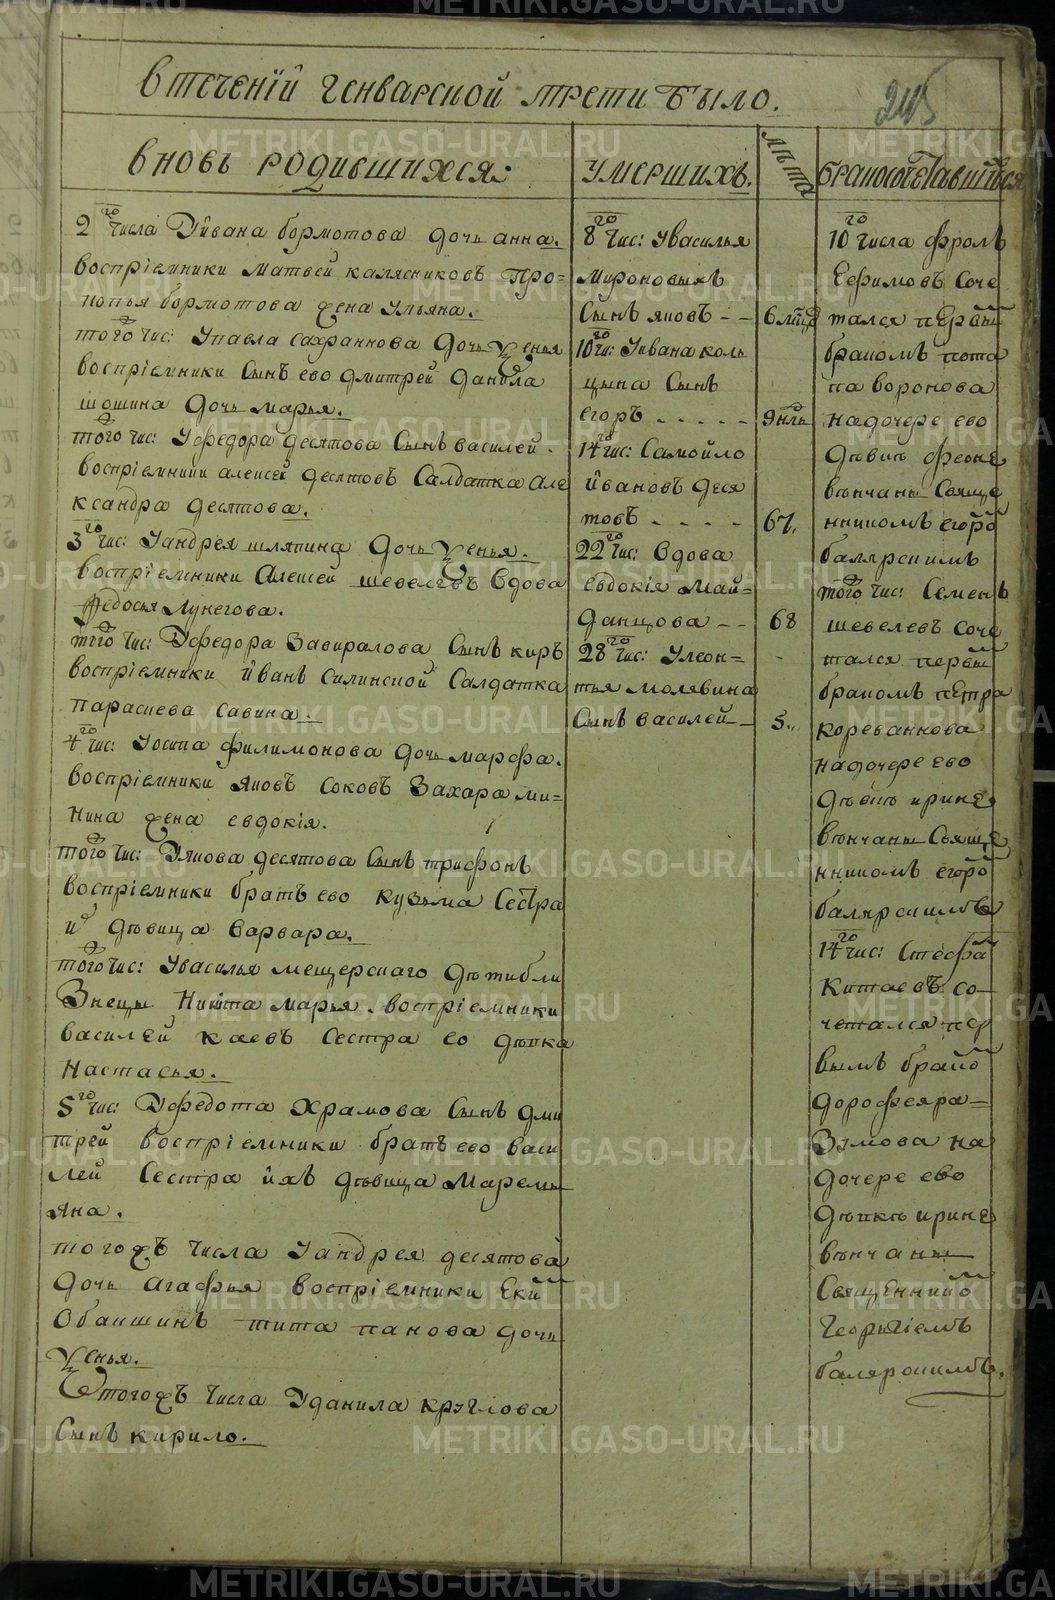 втечениї генварской трети было.
245
вновь родившихся:
2го числа Уивана бормотова дочь анна.
воспрiемники матвей калясниковъ про=
копья бормотова жена ульяна.
того чис: Упавла сахранкова дочь Ксенья
воспрiемники сынъ ево дмитрей данила
шошина дочь марья.
того чис: Уфедора десятова сынъ василей.
воспрiемники алексей десятовъ салдатка але
ксандра десятова.
3го чис: Уандрея шляпина дочь Ксенья.
воспрiемники Алексей шевелевъ вдова
федосья лунегова.
того чис: Уфедора завиралова сынъ киръ
воспрiемники йванъ силинской салдатка
параскева савина.
4го чис: Уосипа филимонова дочь марфа.
воспрiемники яковъ соковъ захара ми=
нина жена евдокiя.
того чис: Уякова десятова сынъ трифонъ
воспрiемники братъ ево кузьма сестра
и дѣвица варвара.
того чис: Увасилья мещерскаго дѣти бли
знецы никита марья. воспрiемники
василей каевъ сестра ео дѣвка
настасья.
5го чис: Уфедота храмова сынъ дми
трей воспрiемники братъ ево васи
лей сестра ихъ дѣвица маремь
яна.
тогожъ числа Уандрея десятова
дочь агафья воспрiемники
обакшинъ тита панова дочь
Ксенья.
тогожъ числа Уданила круглова
сынъ кирило.
умершихъ.
лѣта
8го чис: Увасилья
мироновыхъ
сынъ яковъ - - 6 мцъ
10го чи: Уивана коль
цына сынъ
егоръ - - - - - 9 нлъ
14го чис: самойло
йвановъ деся
товъ - - - - 67.
22го чис: вдова
евдокiя май=
данцова - - 68
28го чис: Улеон=
тья молявина
сынъ василей - 5..
бракосочетавшихся
10го числа фролъ
ефимовъ соче
тался первы
бракомъ пота
па воронова
надочере ево
дѣвкѣ феонѣ
вѣнчаны свяще
нникомъ егоро
баляркимъ
того чис: семенъ
шевелевъ соче
тался первы
бракомъ петра
кореванкова
надочере ево
дѣвкѣ иринѣ
вѣнчаны свяще
нникомъ егоро
баляркимъ
14го чис: стефа
китаевъ со
четался пер
вымъ брако
дорофея ра=
зумова на
дочере ево
дѣвкѣ иринѣ
вѣнчаны
священнико
георгiемъ
баляркимъ.
METRIKI.GASO-URAL.RU